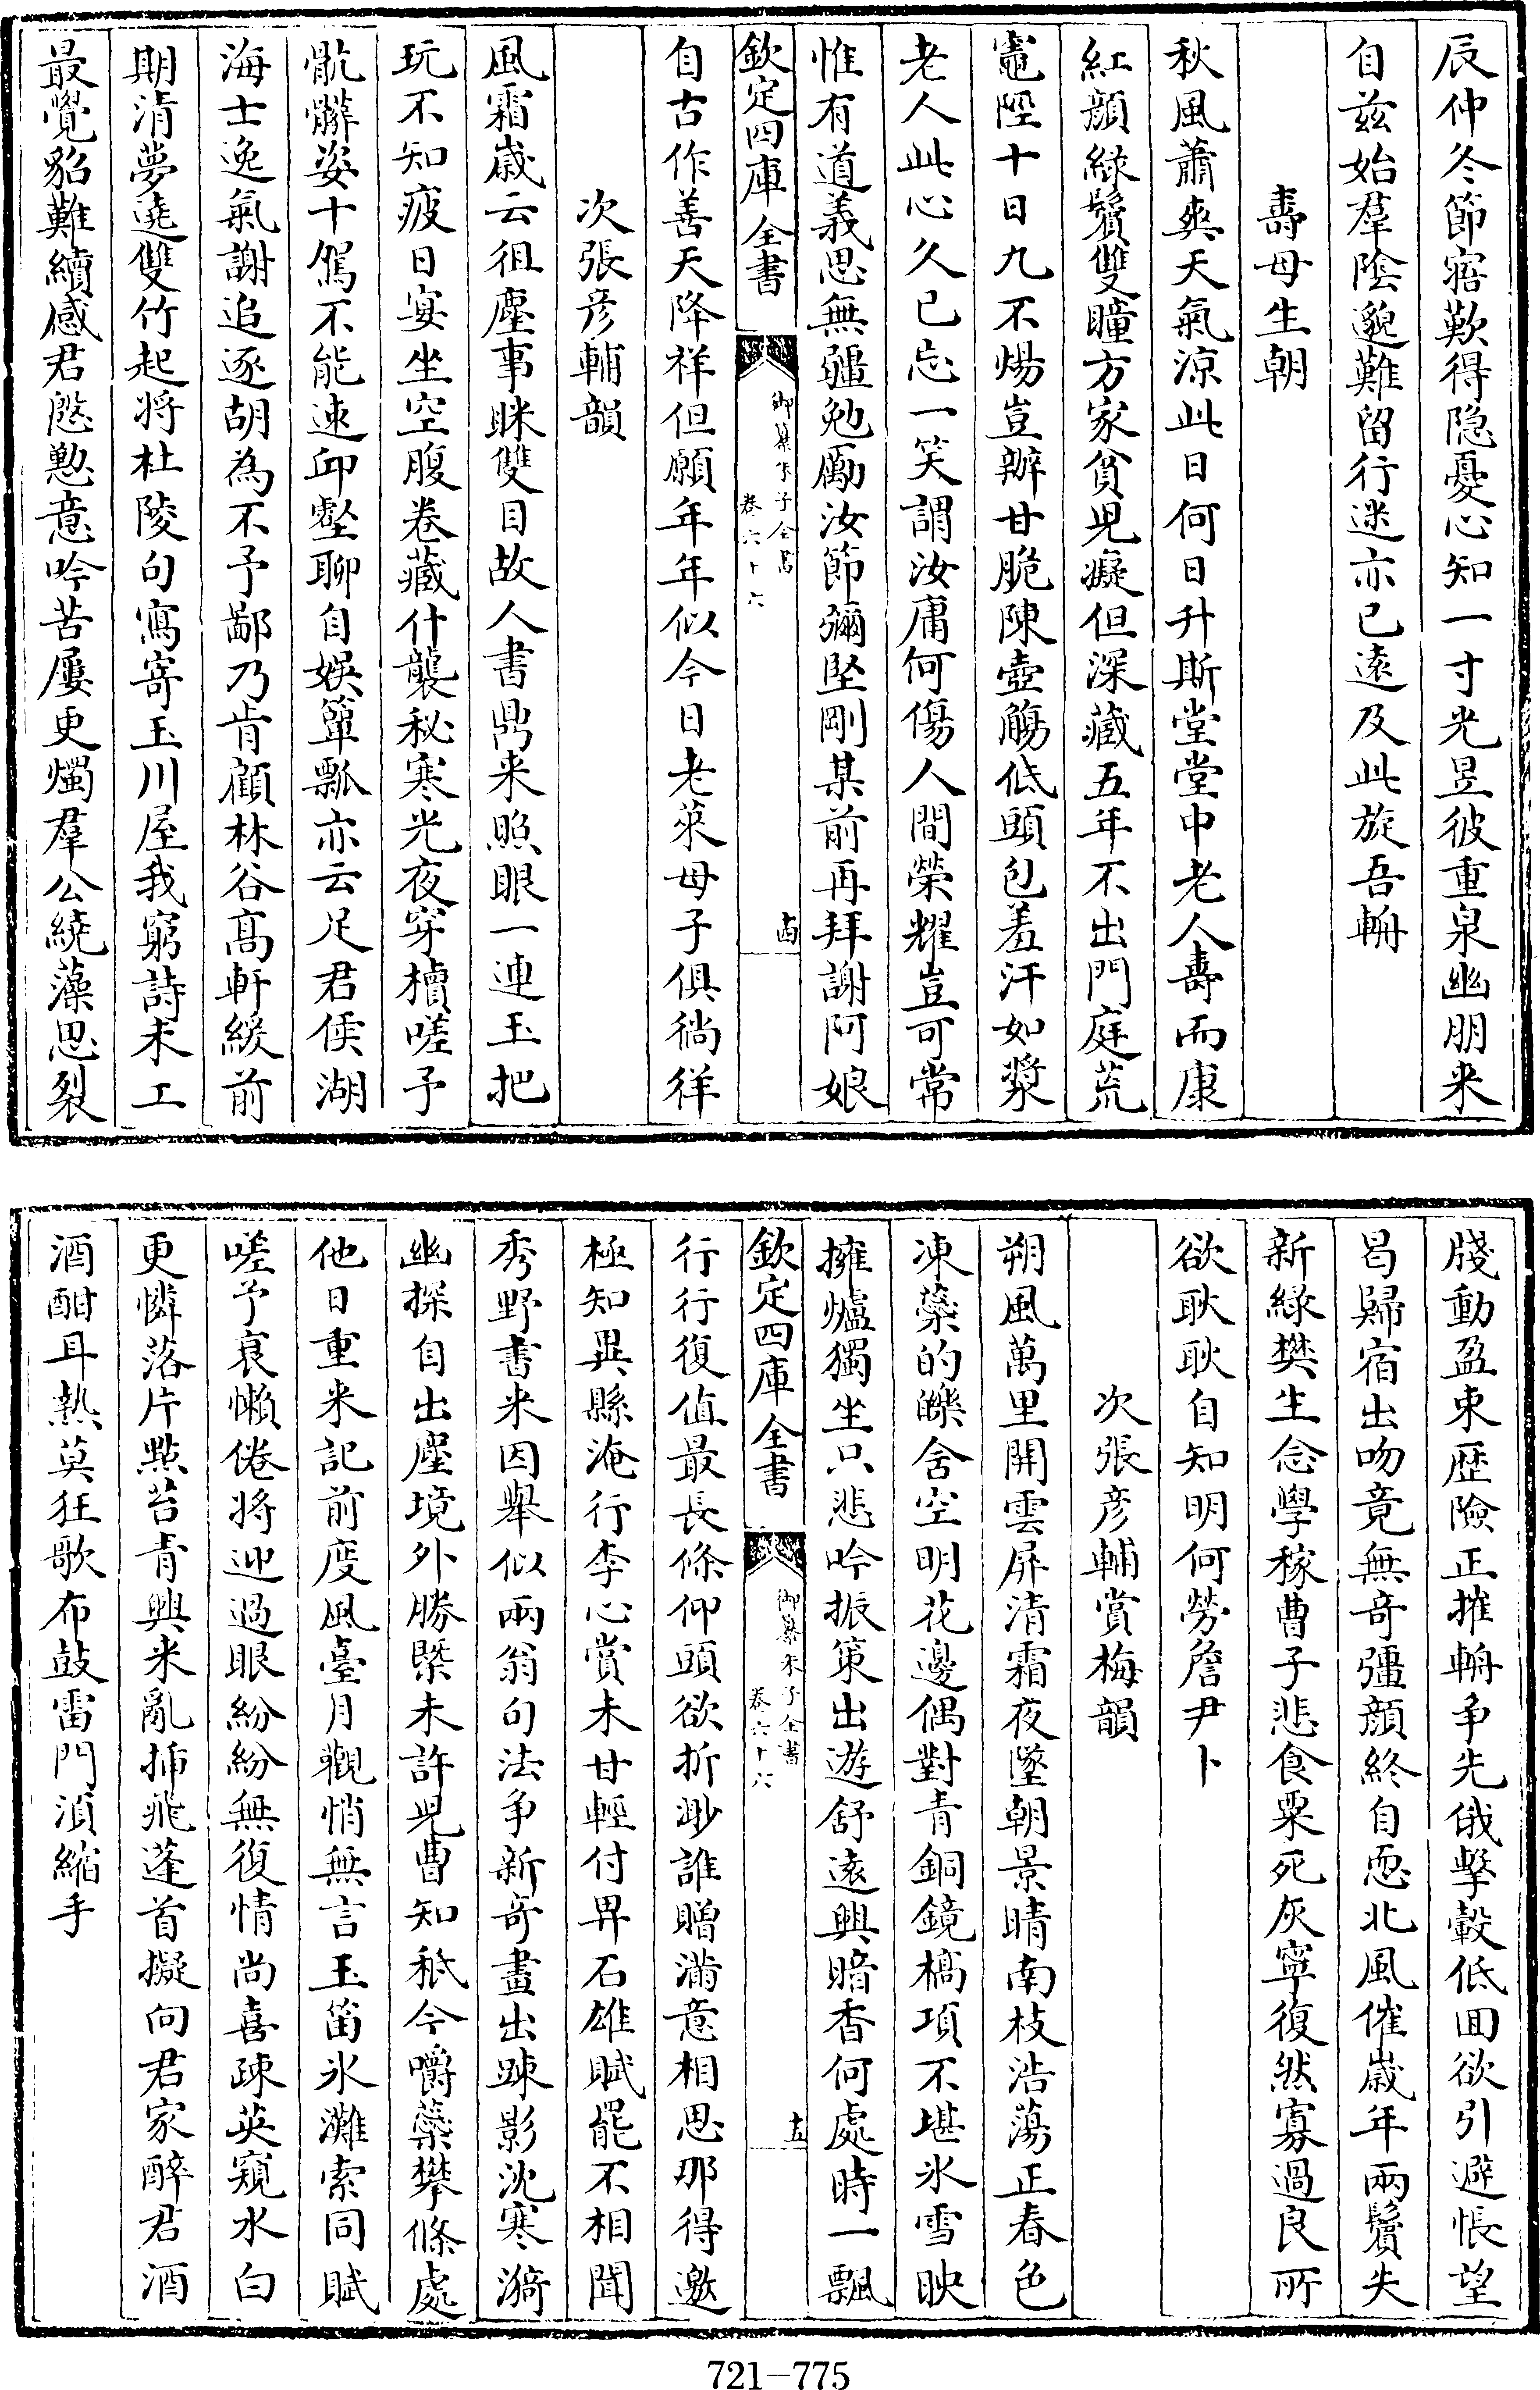 辰仲冬節寤歎得隠憂心知一寸光昱彼重泉幽朋来
自兹始羣陰邈難留行迷亦已逺及此旋吾輈
壽母生朝
秋風蕭爽天氣涼此日何日升斯堂堂中老人壽而康
紅顔緑鬢雙瞳方家貧兒癡但深藏五年不出門庭荒
竈陘十日九不煬豈辦甘脆陳壺觴低頭包羞汗如漿
老人此心久已忘一笑謂汝庸何傷人間榮耀豈可常
惟有道義思無疆勉勵汝節彌堅剛某前再拜謝阿娘
欽定四庫全書
御纂朱子全書
卷六十六
十四
自古作善天降祥但願年年似今日老萊母子俱徜徉
次張彦輔韻
風霜歳云徂塵事眯雙目故人書鼎来照眼一連玉把
玩不知疲日宴坐空腹卷藏什襲秘寒光夜穿櫝嗟予
骯髒姿十駕不能速邱壑聊自娛簞瓢亦云足君侯湖
海士逸氣謝追逐胡為不予鄙乃肯顧林谷髙軒緩前
期清夢遶雙竹起将杜陵句寫寄玉川屋我窮詩未工
最覺貂難續感君慇懃意吟苦屢更燭羣公繞藻思裂
牋動盈束歴險正摧輈争先俄擊轂低囬欲引避悵望
曷歸宿出吻竟無竒彊顔終自恧北風催歳年兩鬢失
新緑樊生念學稼曹子悲食粟死灰寧復然寡過良所
欲耿耿自知明何勞詹尹卜
次張彦輔賞梅韻
朔風萬里開雲屏清霜夜墜朝景晴南枝浩蕩正春色
凍蘂的皪舍空明花邊偶對青銅鏡槁項不堪氷雪映
擁爐獨坐只悲吟振策出遊舒逺興暗香何處時一飄
欽定四庫全書
御纂朱子全書
卷六十六
十五
行行復值最長條仰頭欲折渺誰贈滿意相思那得邀
極知異縣淹行李心賞未甘輕付畀石雄賦罷不相聞
秀野書来因舉似兩翁句法争新竒畫出踈影沈寒漪
幽探自出塵境外勝槩未許兒曹知秖今嚼蘂攀條處
他日重来記前度風臺月觀悄無言玉笛氷灘索同賦
嗟予衰懶倦将迎過眼紛紛無復情尚喜疎英窺水白
更憐落片點苔青興来亂揷飛蓬首擬向君家醉君酒
酒酣耳熱莫狂歌布鼓雷門湏縮手
721-775